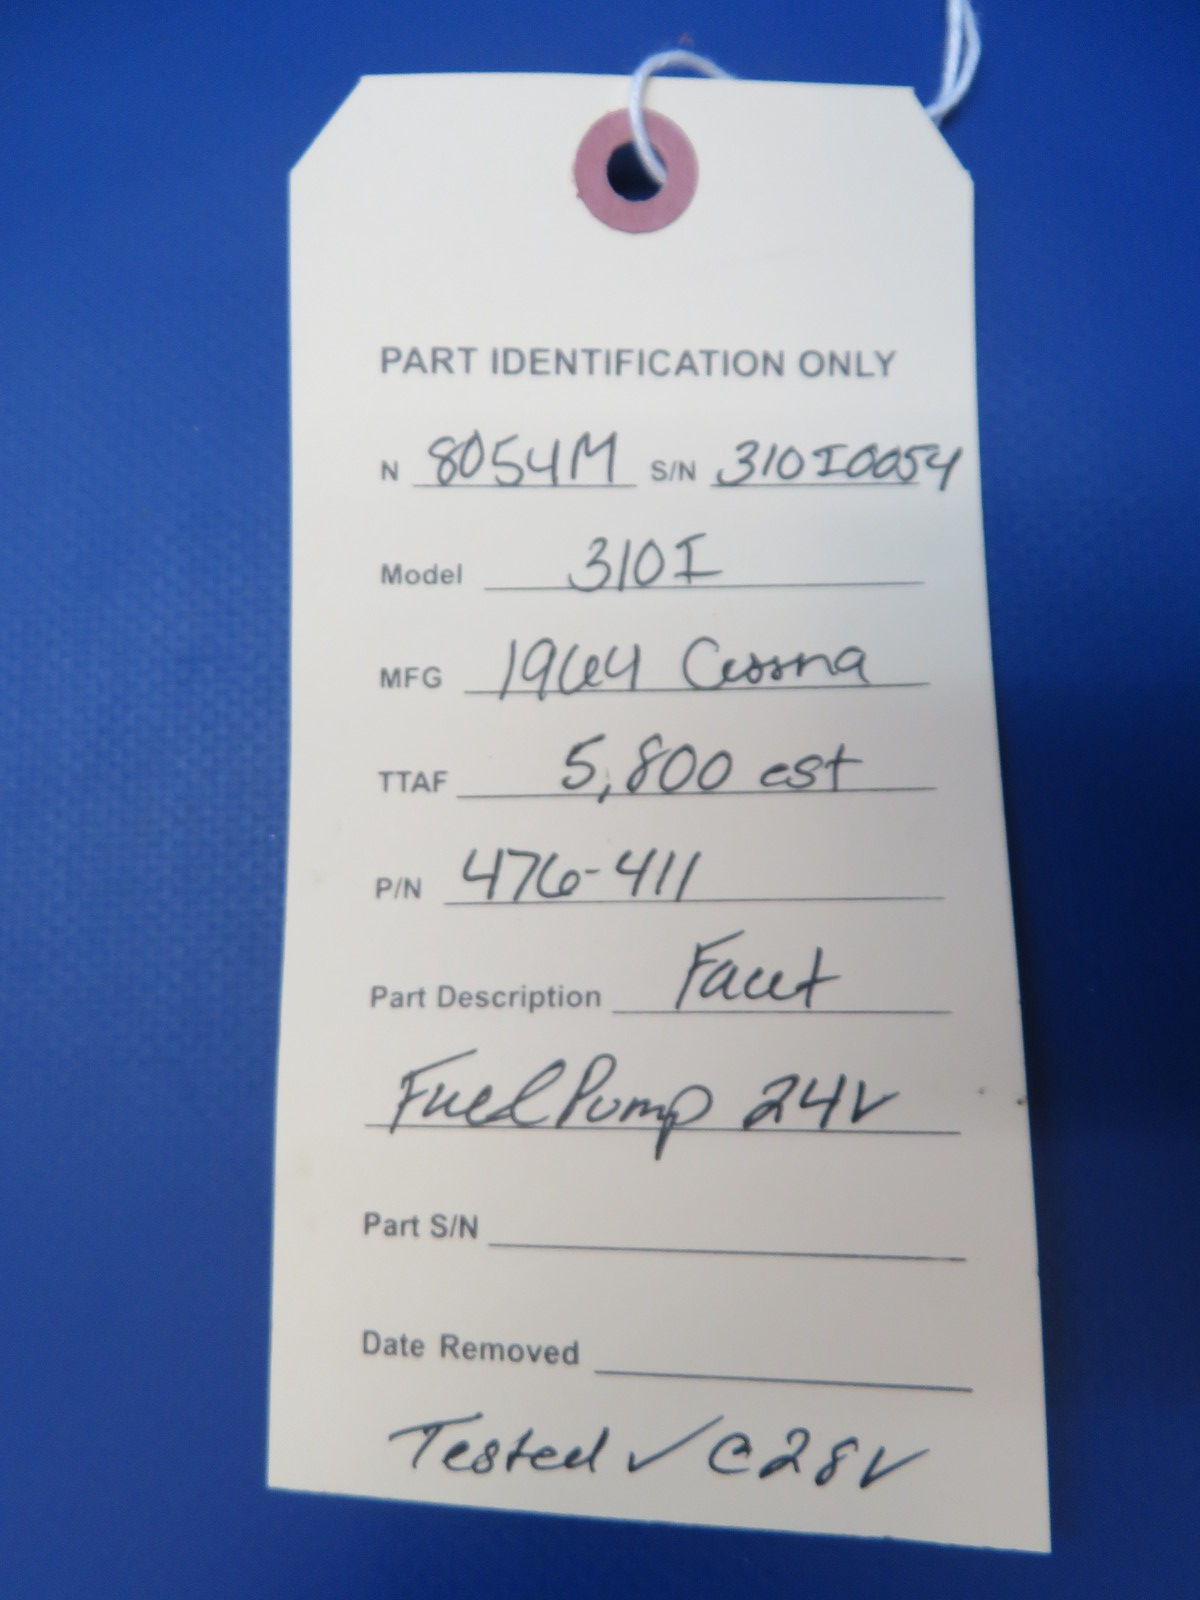 PART IDENTIFICATION ONLY
N 8054M S/N 310I0054
Model 310I
MFG 1964 Cessna
TTAF 5,800 est
P/N 476-411
Part Description Facet
Fuel Pump 24V
Part S/N
Date Removed
Tested ✓ @ 28V